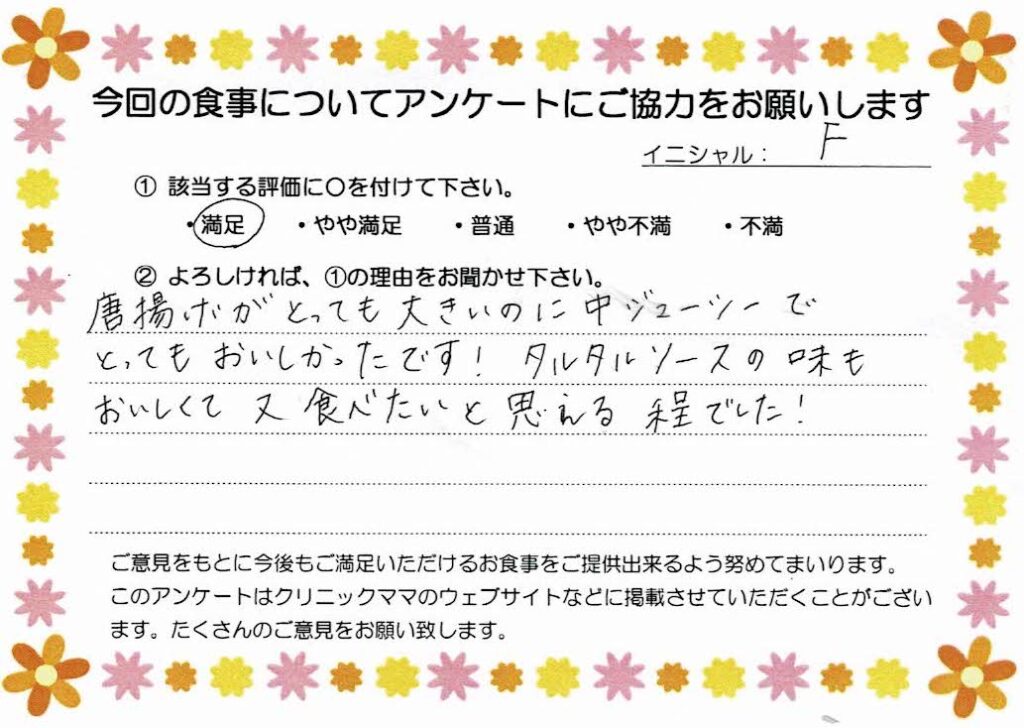 今回の食事についてアンケートにご協力をお願いします
イニシャル： F
① 該当する評価に〇を付けて下さい。
・満足 ・やや満足 ・普通 ・やや不満 ・不満
② よろしければ、①の理由をお聞かせ下さい。
唐揚げがとっても大きいのに中ジューシーで
とってもおいしかったです！ タルタルソースの味も
おいしくて 又 食べたいと思える程でした！
ご意見をもとに今後もご満足いただけるお食事をご提供出来るよう努めてまいります。
このアンケートはクリニックママのウェブサイトなどに掲載させていただくことがござい
ます。たくさんのご意見をお願い致します。